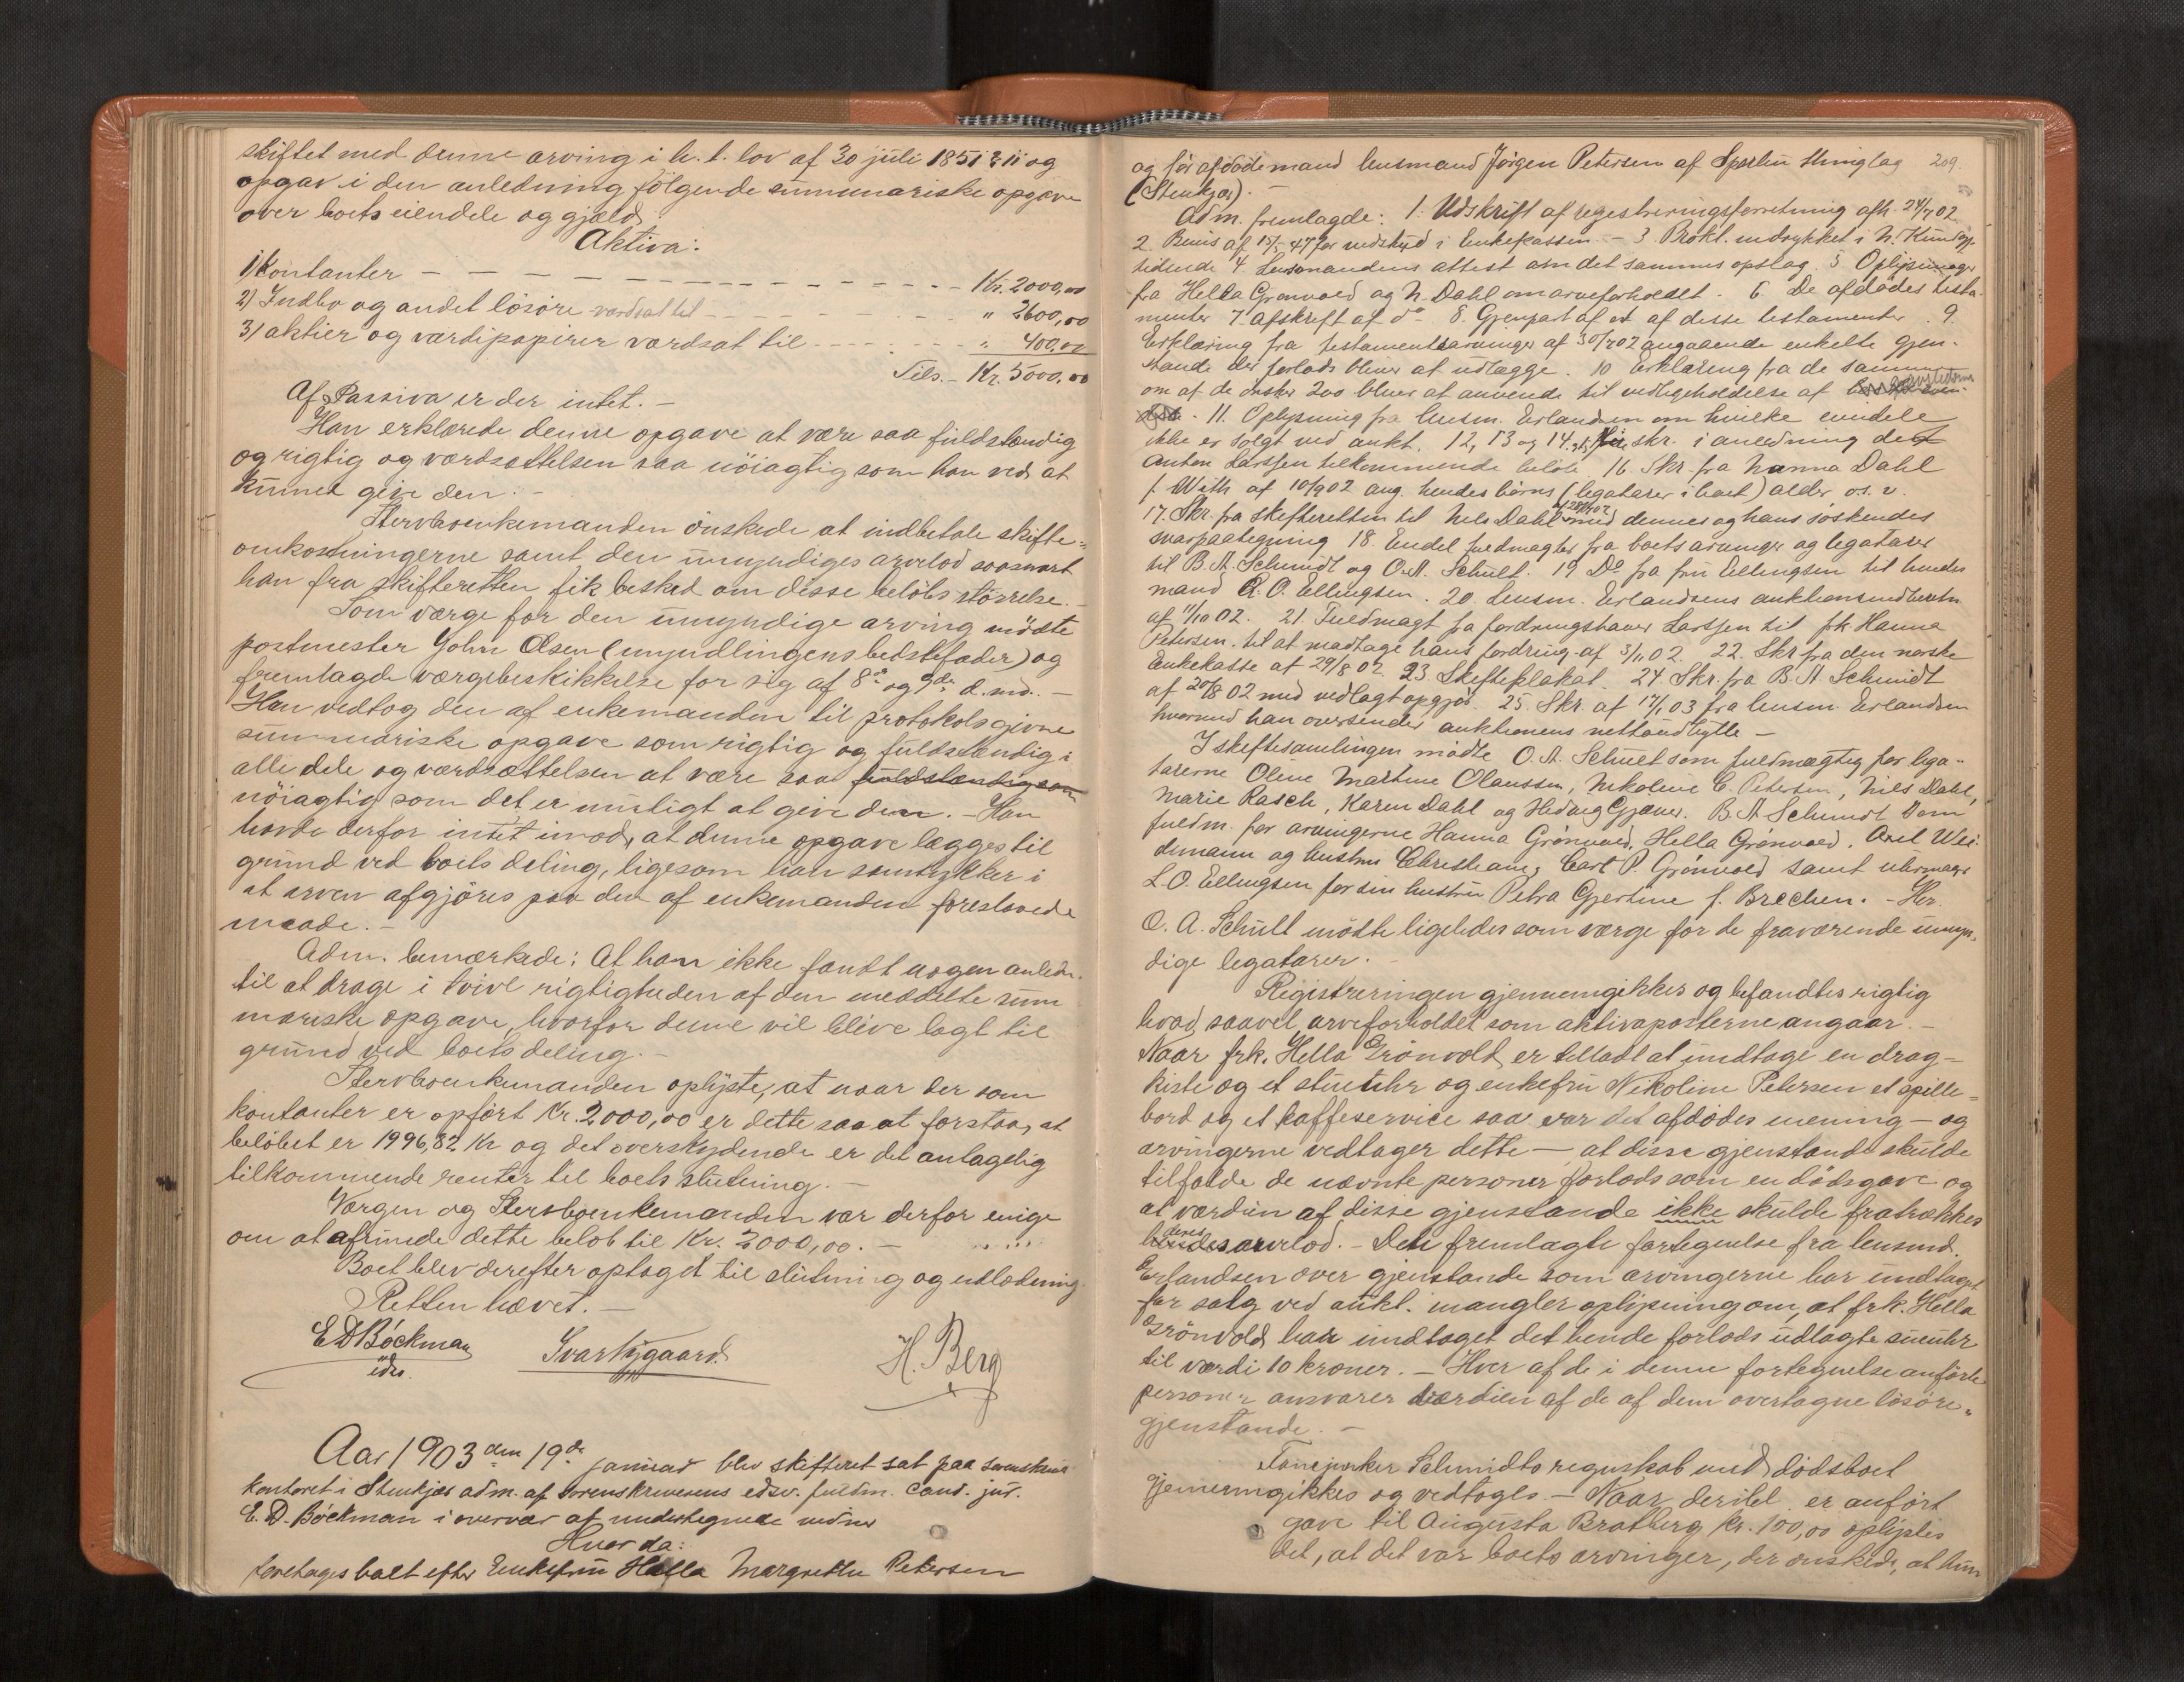 skiftet med denne arving i h. t. lov af 30 juli 1851 § 11 og
opgav i den anledning følgende summariske opgave
over boets eiendele og gjæld:
Aktiva:
1) Kontanter - - - - - - - - - - Kr. 2000,00
2) Indbo og andet løsøre værdsat til - - - - - - " 2600,00
3) aktier og værdipapirer værdsat til - - - - - - " 400,00
Tils. - Kr. 5000,00
Af Passiva er der intet. -
Han erklærede denne opgave at være saa fuldstændig
og rigtig og værdsættelsen saa nøiagtig som han ved at
kunne give den. -
Stervboenkemanden ønskede at indbetale skifte=
omkostningerne samt den umyndiges arvelod saasnart
han fra skifteretten fik besked om disse beløbs størrelse. -
Som værge for den umyndige arving mødte
postmester John Olsen (myndlingens bedstefader) og
fremlagde værgebeskikkelse for sig af 8de og 9de d. md. -
Han vedtog den af enkemanden til protokols givne
summariske opgave som rigtig og fuldstændig i
alle dele og værdsættelsen at være saa fuldstændig som
nøiagtig som det er muligt at give den. - Han
havde derfor intet imod, at denne opgave lægges til
grund ved boets deling, ligesom han samtykker i
at arven afgjøres paa den af enkemanden foreslaaede
maade. -
Adm. bemærkede: At han ikke fandt nogen anledn.
til at drage i tvivl rigtigheden af den meddelte sum
mariske opgave, hvorfor denne vil blive lagt til
grund ved boets deling. -
Stervboenkemanden oplyste, at naar der som
kontanter er opført Kr. 2000,00 er dette saa at forstaa, at
beløbet er 1996,82 Kr og det overskydende er det antagelig
tilkommende renter til boets slutning. -
Værgen og Stervboenkemanden var derfor enige
om at afrunde dette beløb til Kr. 2000,00. -
Boet blev derefter optaget til slutning og udlodning.
Retten hævet. -
E D Böckman
eds.
Ivar Nygaard.
H. Berg
Aar 1903 den 19de januar blev skifteret sat paa sorenskriver
kontoret i Stenkjær adm. af sorenskriverens edsv. fuldm. Cand. jur.
E. D. Böckman i overvær af undertegnede vidner
Hvor da:
foretages boet efter Enkefru Hella Margrethe Petersen
209.
og før afdøde mand lensmand Jørgen Petersen af Sparbu thinglag
(Stenkjær). -
Adm. fremlagde: 1. Udskrift af registreringsforretning afh. 24/7 02
2. Bevis af 15/5 47 for indskud i Enkekassen - 3 Prokl. indrykket i N. Kundgj.
tidende 4. Lensmandens attest om det sammes opslag. 5 Oplysninger
fra Hella Grønvold og N. Dahl om arveforholdet. 6. De afdødes testa-
menter 7. Afskrift af do 8. Gjenpart af et af disse testamenter. 9.
Erklæring fra testamentsarvinger af 30/7 02 angaaende enkelte gjen-
stande der forlods bliver at udlægge. 10 Erklæring fra de samme
om at de ønsker 200 bliver at anvende til vedligeholdelse af gravstederne
11. Oplysning fra lensm. Erlandsen om hvilke eiendele
ikke er solgt ved aukt. 12, 13 og 14. skr. i anledning det
Anton Larssen tilkommende beløb 16 Skr. fra Hanna Dahl
f. Weth af 10/9 02 ang. hendes børns (legatarer i boet) alder o. s. v.
17. Skr. fra skifteretten til Nils Dahl med dennes og hans søskendes
svarpaategning 18. Endel fuldmagter fra boets arvinger og legatarer
til B. A. Schmidt og O. A. Schult. 19 Do fra fru Ellingsen til hendes
mand L. O. Ellingsen. 20. Lensm. Erlandsens auktionsindberetn
af 11/10 02. 21. Fuldmagt fra fordringshaver Larssen til frk. Hanna
Petersen til at modtage hans fordring af 3/11 02. 22. Skr fra den norske
Enkekasse af 29/8 02 23. Skifteplakat. 24 Skr. fra B. A. Schmidt
af 20/8 02 med vedlagt opgjør. 25. Skr. af 17/1 03 fra lensm. Erlandsen
hvormed han oversender auktionens nettoudbytte -
I skiftesamlingen mødte O. A. Schult som fuldmægtig for lega-
tarerne Oline Martine Olaussen, Nikoline C. Petersen, Nils Dahl,
Marie Rasch, Karen Dahl og Hedvig Gjæver. B. A Schmidt som
fuldm. for arvingerne Hanna Grønvold, Hella Grønvold, Axel Wei-
demann og hustru Christiane, Carl P. Grønvold samt uhrmager
L. O. Ellingsen for sin hustru Petra Gjertine f. Brechen. - Hr.
O. A. Schult mødte ligeledes som værge for de fraværende umyn-
dige legatarer. -
Registreringen gjennemgikkes og befandtes rigtig
hvad saavel arveforholdet som aktivaposterne angaar. -
Naar frk. Hella Grönvold er tilladt at undtage en drag=
kiste og et stueuhr og enkefru Nikoline Petersen et spille=
bord og et kaffeservice saa var det afdødes mening - og
arvingerne vedtager dette - at disse gjenstande skulde
tilfalde de nævnte personer forlods som en dødsgave og
at værdien af disse gjenstande ikke skulde fratrækkes
deres arvelod. - Den fremlagte fortegnelse fra lensmd.
Erlandsen over gjenstande som arvingerne har undtaget
for salg ved aukt. mangler oplysning om, at frk. Hella
Grönvold har undtaget det hende forlods udlagte stueuhr
til værdi 10 kroner. - Hver af de i denne fortegnelse anførte
personer ansvarer værdien af de af dem overtagne løsøre=
gjenstande. -
Schmidts regnskab med dødsboet
gjennemgikkes og vedtoges. - Naar deri er anført
gave til Augusta Bratberg Kr. 100,00 oplystes
det, at det var boets arvinger, der ønskede, at hun